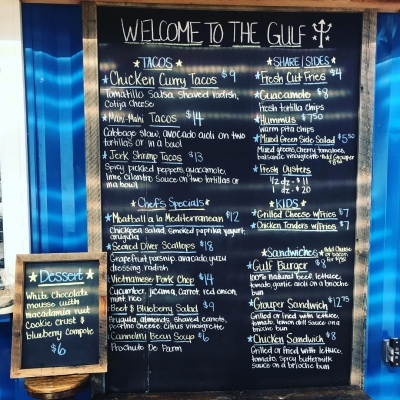 WELCOME TO THE GULF
TACOS
Chicken Curry Tacos $9
Tomatillo Salsa, Shaved radish,
Cotija cheese
Mahi-Mahi Tacos $14
Cabbage slaw, avocado aioli on two
tortillas or in a bowl
Jerk Shrimp Tacos $13
Spicy pickled peppers, guacamole,
lime cilantro sauce on two tortillas or
in a bowl
Chef's Specials
Meatball a la Mediterranean $12
Chickpea salad, smoked paprika yogurt,
arugula
Seared Diver Scallops $18
Grapefruit, parsnip, avocado, yuzu
dressing, radish
Vietnamese Pork Chop $14
Cucumber, jicama, carrot, red onion,
mint, rice
Beet & Blueberry Salad $9
Arugula, almonds, shaved carrots,
pecorino cheese, citrus vinaigrette
Cannolini Bean Soup $6
Proscuito De Parm
SHARE | SIDES
Fresh Cut Fries $4
Guacamole $8
Fresh tortilla chips
Hummus $7.50
Warm pita chips
Mixed Green Side Salad $5.50
Mixed greens, cherry tomatoes,
balsamic vinaigrette *Add Grouper
Fresh Oysters
1/2 dz - $11
dz - $20
KIDS
Grilled Cheese w/Fries $7
Chicken Tenders w/Fries $7
Sandwiches
*Add cheese or
bacon for
Gulf Burger $8
100% natural beef, lettuce,
tomato, garlic aioli on a brioche
bun
Grouper Sandwich $12.75
Grilled or fried with lettuce,
tomato, lemon dill sauce on a
brioche bun
Chicken Sandwich $8
Grilled or fried with lettuce,
tomato, spicy buttermilk
sauce on a brioche bun
Dessert
White chocolate
mousse with
macadamia nut
cookie crust &
blueberry compote
$6